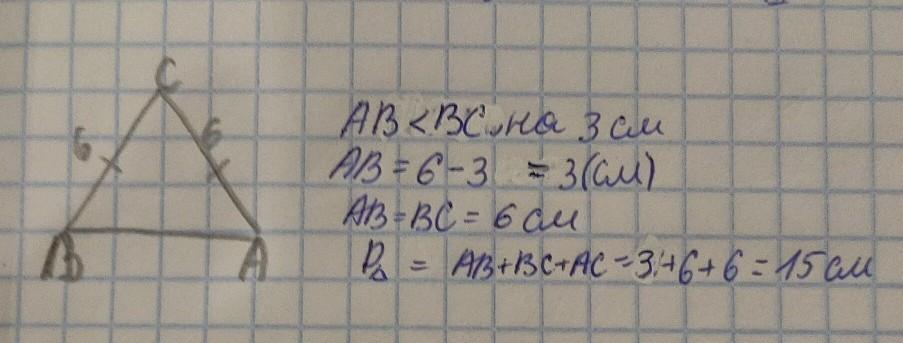 C
6 6
B A
AB < BC на 3 см
AB = 6 - 3 = 3 (см)
AB = BC = 6 см
P△ = AB + BC + AC = 3 + 6 + 6 = 15 см